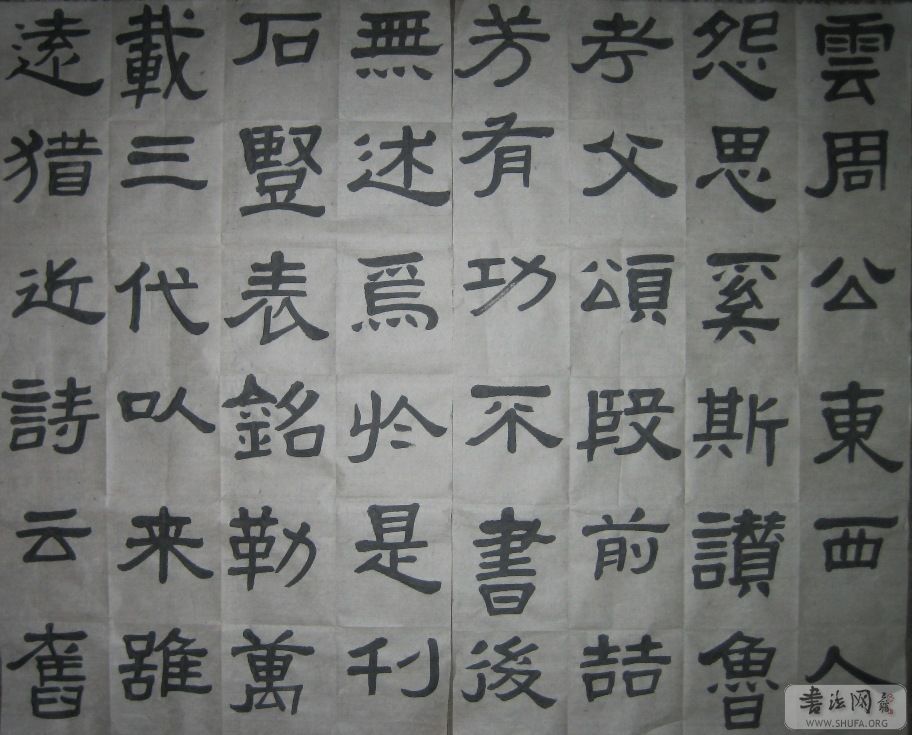 雲周公東西人
怨思奚斯讃魯
考父頌殷前喆
芳有功不書後
無述焉於是刊
石豎表銘勒萬
載三代以来雖
遠猶近詩云舊
书法网
WWW.SHUFA.ORG